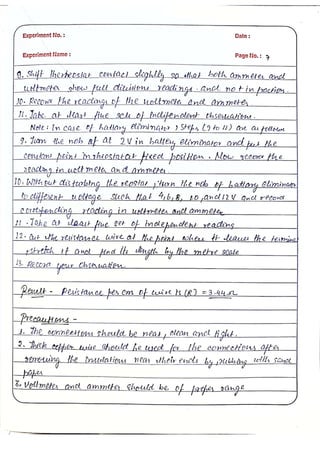 Experiment No. :
Date :
Experiment Name :
Page No. : 7
9. Shift the rheostat contact slightly so that both ammeter and
voltmeter show full divisions readings and not in fraction.
10. Record the readings of the voltmeter and ammeter
11. Take at least five sets of independent observations.
Note: In case of battery eliminator, steps (9 to 11) are as follows
9. Turn the nob of at 2V in battery eliminator and put the
contact point in rheostat at fixed position. Now record the
reading in voltmeter and ammeter
10. Without disturbing the reostat, turn the nob of battery eliminator
to different voltage such that 4, 6, 8, 10, and 12V and record
corresponding reading in voltmeter and ammeter
11. Take at least five set of independent reading
12. Cut the resistance wire at the point where it leaves the termina
stretch it and find its length by the metre scale
13. Record your observation.
Result - Resistance per cm of wire is (R) = 3.44 Ω
Precautions -
1. The connections should be neat, clean and tight.
2. Thick copper wire should be used for the connections after
removing the insulations near their ends by rubbing with sand
paper
3. Voltmeter and ammeter should be of proper range